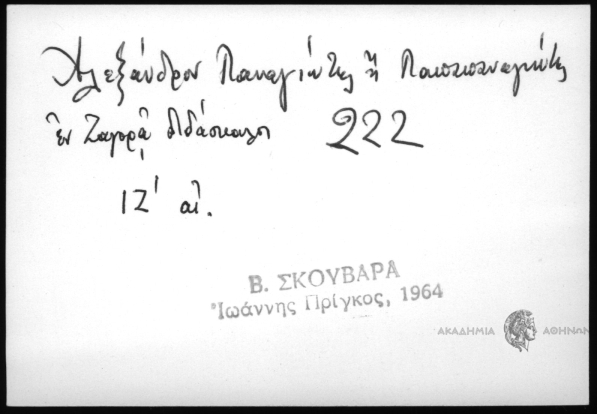 Ἀλεξάνδρου Παναγιώτης ἢ Παπαπαναγιώτης
ἐν Ζαγορᾷ διδάσκαλοι 222
ΙΖ' αἰ.
Β. ΣΚΟΥΒΑΡΑ
Ἰωάννης Πρίγκος, 1964
ΑΚΑΔΗΜΙΑ ΑΘΗΝΩΝ